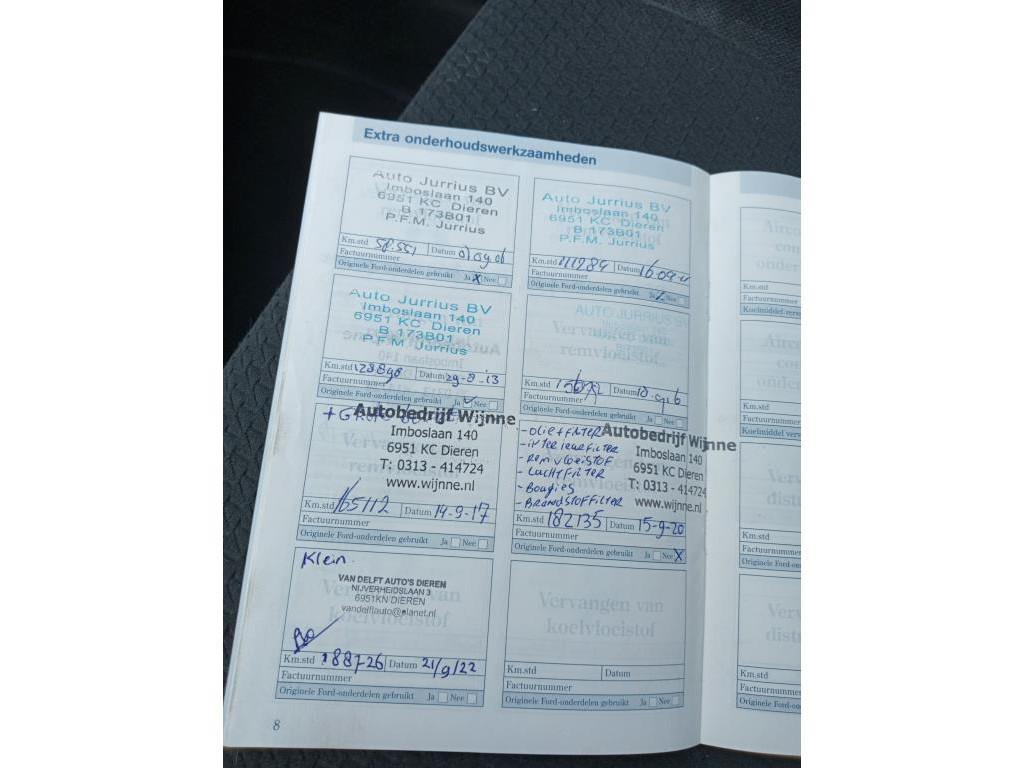 Extra onderhoudswerkzaamheden
Auto Jurrius BV
Imboslaan 140
6951 KC Dieren
B 173B01
P.F.M. Jurrius
Km.std 58.551 Datum
Factuurnummer
Originele Ford-onderdelen gebruikt Ja X Nee
Auto Jurrius BV
Imboslaan 140
6951 KC Dieren
B 173B01
P.F.M. Jurrius
Km.std 111284 Datum
Factuurnummer
Originele Ford-onderdelen gebruikt Ja Nee
Auto Jurrius BV
Imboslaan 140
6951 KC Dieren
B 173B01
P.F.M. Jurrius
Km.std 128890 Datum 29-8-'13
Factuurnummer
Originele Ford-onderdelen gebruikt Ja Nee
AUTO JURRIUS BV
Km.std Datum
Factuurnummer
Originele Ford-onderdelen gebruikt Ja Nee
Autobedrijf Wijnne
Imboslaan 140
6951 KC Dieren
T: 0313 - 414724
www.wijnne.nl
Km.std 165112 Datum 14-9-17
Factuurnummer
Originele Ford-onderdelen gebruikt Ja Nee
- OLIEFFILTER
- interieurfilter
- remvloeistof
- LuchtFilter
- Bougies
- BRANDSTOFFILTER
Autobedrijf Wijnne
Imboslaan 140
6951 KC Dieren
T: 0313 - 414724
www.wijnne.nl
Km.std 182135 Datum 15-9-20
Factuurnummer
Originele Ford-onderdelen gebruikt Ja Nee X
Klein
VAN DELFT AUTO'S DIEREN
NIJVERHEIDSLAAN 3
6951KN DIEREN
vandelftauto@planet.nl
Km.std 188726 Datum 21/9/22
Factuurnummer
Originele Ford-onderdelen gebruikt Ja Nee
Vervangen van
koelvloeistof
Km.std Datum
Factuurnummer
Originele Ford-onderdelen gebruikt Ja Nee
8
Km.std
Factuurnummer
Km.std
Factuurnummer
Km.std
Factuurnummer
Km.std
Factuurnummer